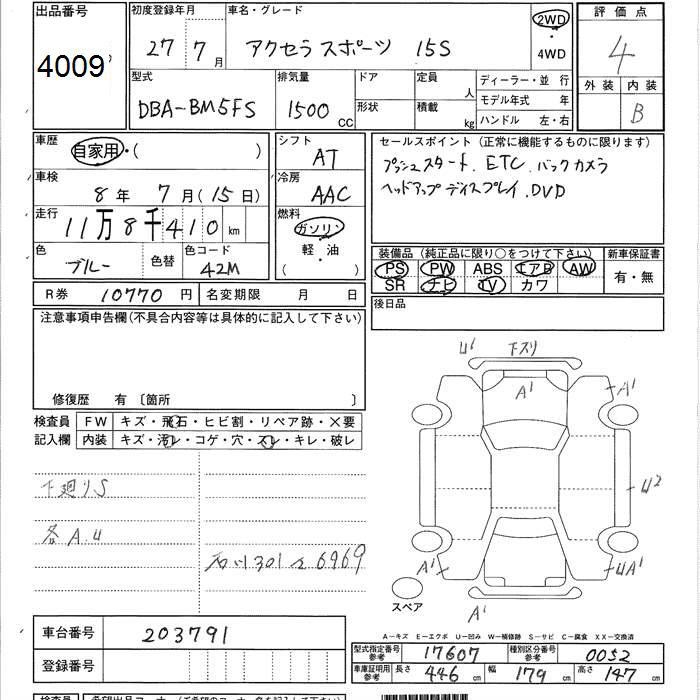 出品番号 4009
初度登録年月 27年 7月
車名・グレード アクセラ スポーツ 15S
2WD・4WD
評価点 4
外装 内装
B
型式 DBA-BM5FS
排気量 1500 CC
ドア
形状
定員 人
積載 kg
ディーラー・並行
モデル年式 年
ハンドル 左・右
車歴 自家用・( )
シフト AT
セールスポイント (正常に機能するものに限ります)
プッシュスタート、ETC、バックカメラ
ヘッドアップディスプレイ、DVD
車検 8年 7月(15日)
冷房 AAC
走行 11万8千410km
燃料 ガソリン・軽・油
( )
色 ブルー 色替
色コード 42M
装備品 (純正品に限り○をつけて下さい)
PS PW ABS エアB AW
SR ナビ TV カワ
新車保証書
有・無
R券 10770円
名変期限 月 日
後日品
注意事項申告欄(不具合内容等は具体的に記入して下さい)
修復歴 有 〔箇所 〕
検査員記入欄
FW キズ・飛石・ヒビ割・リペア跡・×要
内装 キズ・汚レ・コゲ・穴・スレ・キレ・破レ
下廻りS
各A.U
石川301 6969
U1 下スリ
A1
A1
U2
A1
UA1
A1
スペア
A－キズ E－エクボ U－凹み W－補修跡 S－サビ C－腐食 XX－交換済
車台番号 203791
登録番号
型式指定番号 参考 17607
種別区分番号 参考 0052
車庫証明用 参考 長さ 446cm 幅 179cm 高さ 147cm